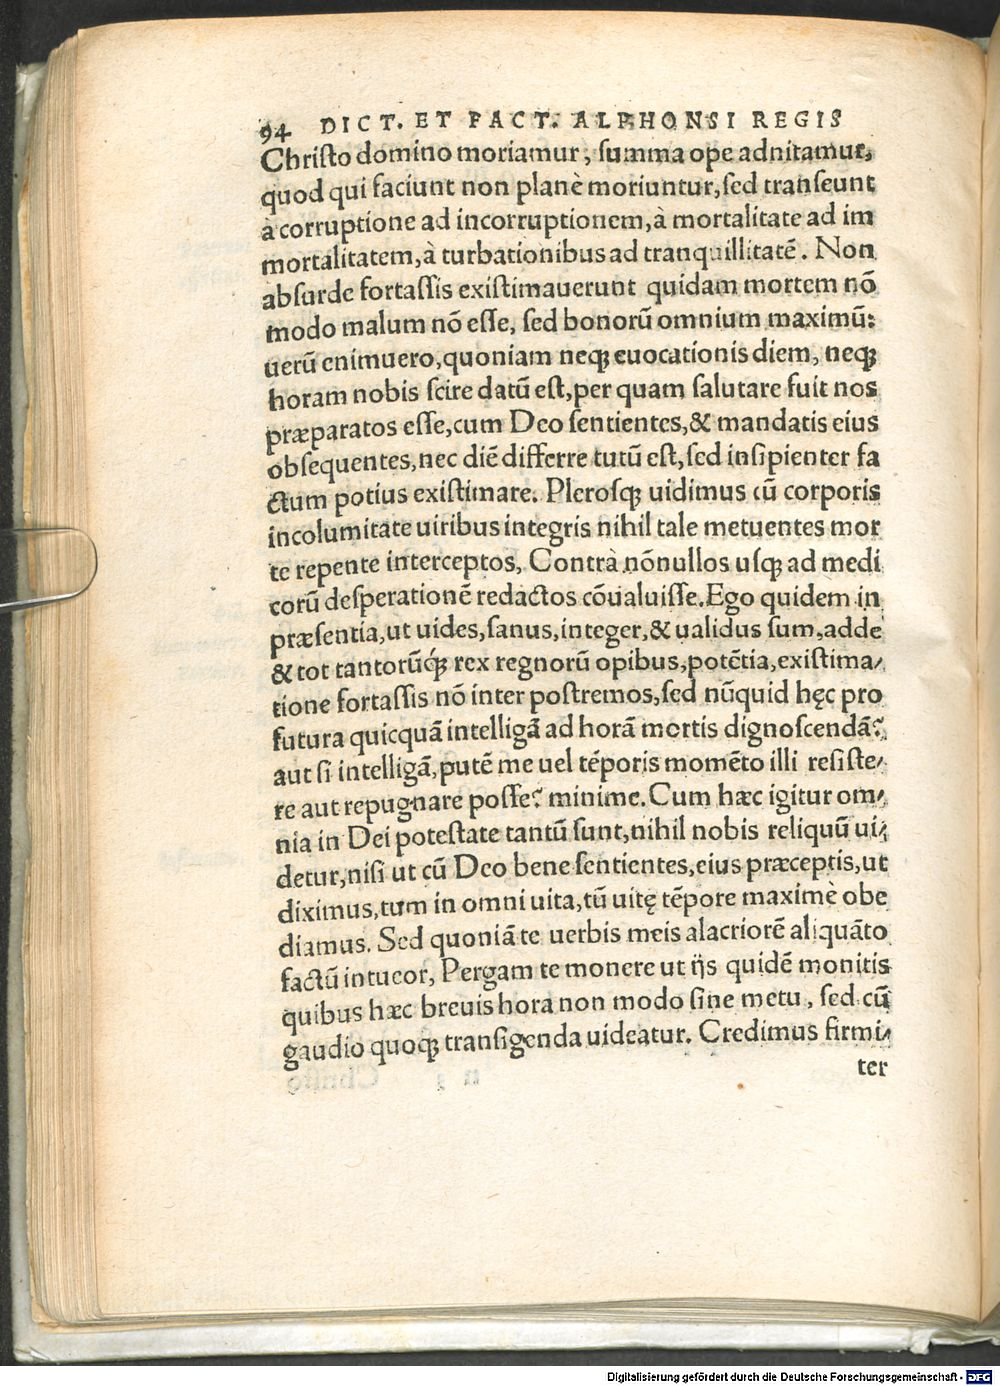 94 DICT. ET FACT. ALPHONSI REGIS
Christo domino moriamur, summa ope adnitamur,
quod qui faciunt non planè moriuntur, sed transeunt
à corruptione ad incorruptionem, à mortalitate ad im
mortalitatem, à turbationibus ad tranquillitatē. Non
absurde fortassis existimauerunt quidam mortem nō
modo malum nō esse, sed bonorū omnium maximū:
uerū enimuero, quoniam neqꝫ euocationis diem, neqꝫ
horam nobis scire datū est, per quam salutare fuit nos
præparatos esse, cum Deo sentientes, & mandatis eius
obsequentes, nec diē differre tutū est, sed insipienter fa
ctum potius existimare. Plerosqꝫ uidimus cū corporis
incolumitate uiribus integris nihil tale metuentes mor
te repente interceptos, Contrà nōnullos usqꝫ ad medi
corū desperationē redactos cōualuisse. Ego quidem in
præsentia, ut uides, sanus, integer, & ualidus sum, adde
& tot tantorūq́ꝫ rex regnorū opibus, potētia, existima/
tione fortassis nō inter postremos, sed nūquid hęc pro
futura quicquā intelligā ad horā mortis dignoscendā?
aut si intelligā, putē me uel tēporis momēto illi resiste/
re aut repugnare posse? minime. Cum hæc igitur om/
nia in Dei potestate tantū sunt, nihil nobis reliquū ui/
detur, nisi ut cū Deo bene sentientes, eius præceptis, ut
diximus, tum in omni uita, tū uitę tēpore maximè obe
diamus. Sed quoniā te uerbis meis alacriorē aliquāto
factū intueor, Pergam te monere ut ijs quidē monitis
quibus hæc breuis hora non modo sine metu, sed cū
gaudio quoqꝫ transigenda uideatur. Credimus firmi/
ter
Digitalisierung gefördert durch die Deutsche Forschungsgemeinschaft - DFG